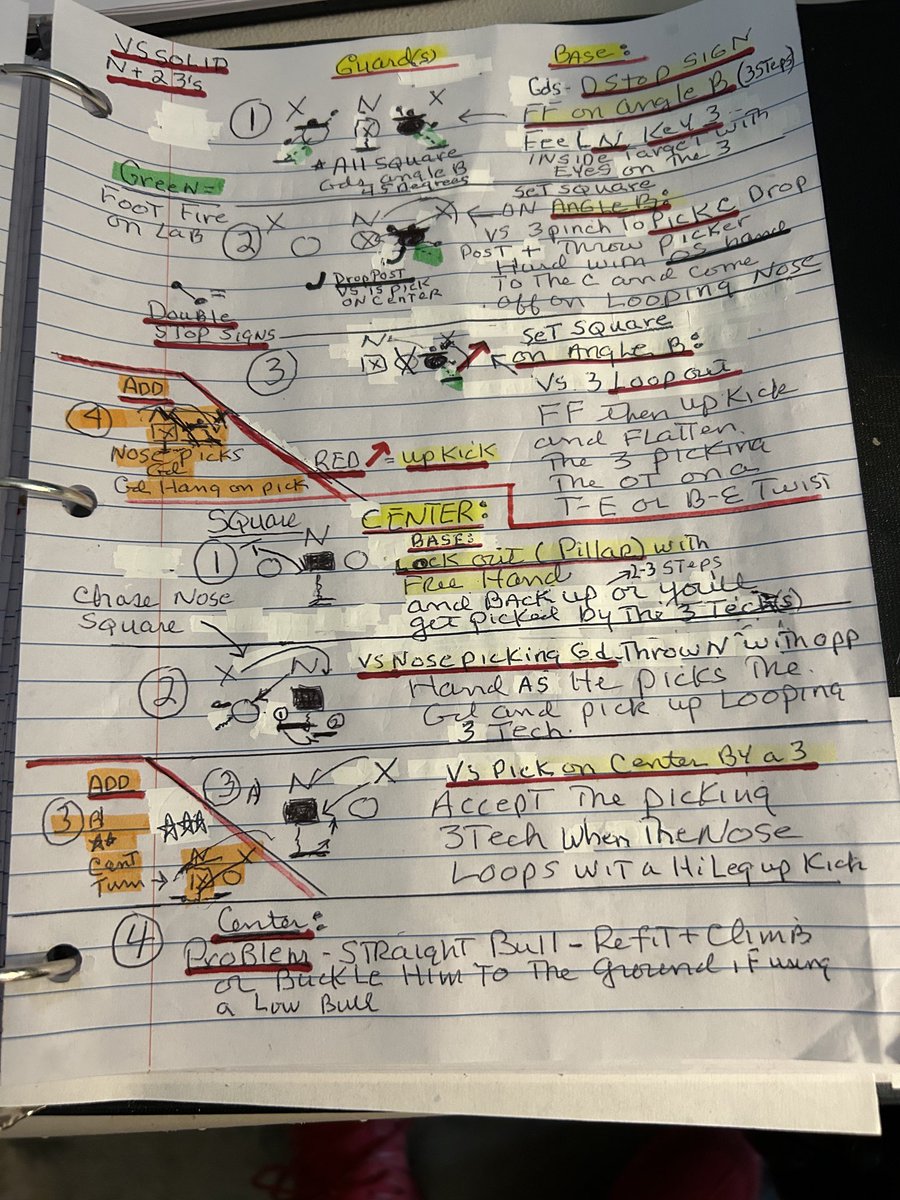 VS SOLID
N + 2 3's
Guard(s)
BASE:
Gds - DSTOP SIGN
FF on Angle B (3 Steps)
Feel N Key 3
inside Target with
Eyes on the 3
① X N X
* All Square
Gds angle B
45 degrees
GreeN =
FOOT Fire
on LaB
② X N X
Drop Post
VS is Pick
ON CenTER
SeT SQuare
ON AAGLe B:
VS 3 pinch To Pick C Drop
Post + Throw Picker
Hard with OS hand
To The C and come
off on Looping Nose
=
Double
STOP SIGNS
③ N X
SeT SQuare
on Angle B:
VS 3 Loop out
FF then up Kick
and Flatten.
The 3 picking
The OT on a
T-E or B-E Twist
ADD
④
Nose picks
Gd
Gd Hang on pick
RED = up Kick
CENTER:
SQuare
① N
BASE:
Lock out (Pillar) with
Free Hand
2-3 STeps
and BAck up or you'll
get picked by The 3 Tech(s)
Chase Nose
Square
② X N
① ②
VS Nose picking Gd Throw N with opp
Hand AS He picks The
Gd and pick up Looping
3 Tech.
ADD
③ A
Cent
Turn
③ A N X
N X
VS Pick on Center By a 3
Accept The picking
3 Tech When The Nose
Loops wit a Hi Leg up Kick
④ Center:
Problem - STraight Bull - Refit + Climb
or Buckle Him To The Ground if using
a Low Bull